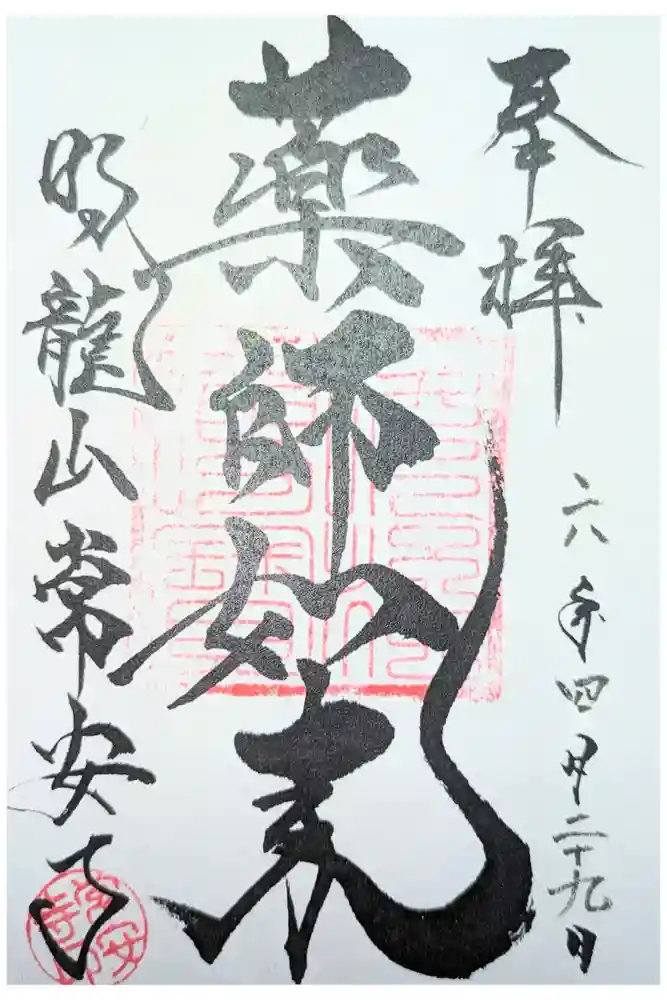 奉拝
六年四月二十九日
薬師如来
明龍山常安寺